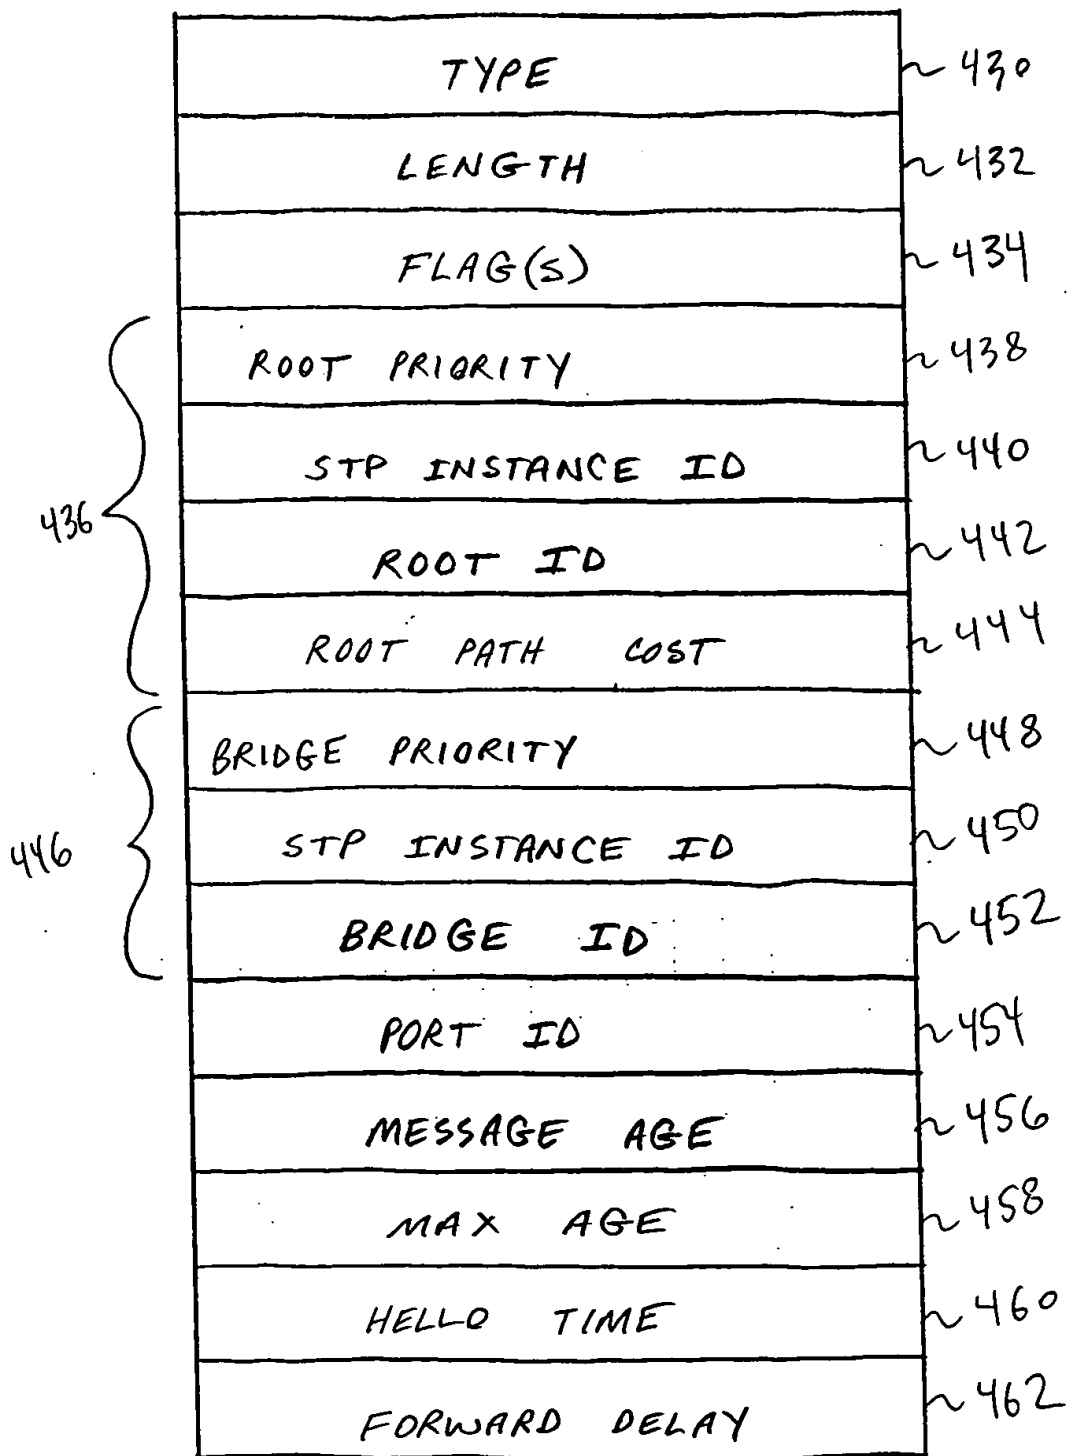 TYPE 430
LENGTH 432
FLAG(S) 434
ROOT PRIORITY 438
STP INSTANCE ID 440
436
ROOT ID 442
ROOT PATH COST 444
BRIDGE PRIORITY 448
446 STP INSTANCE ID 450
BRIDGE ID 452
PORT ID 454
MESSAGE AGE 456
MAX AGE 458
HELLO TIME 460
FORWARD DELAY 462